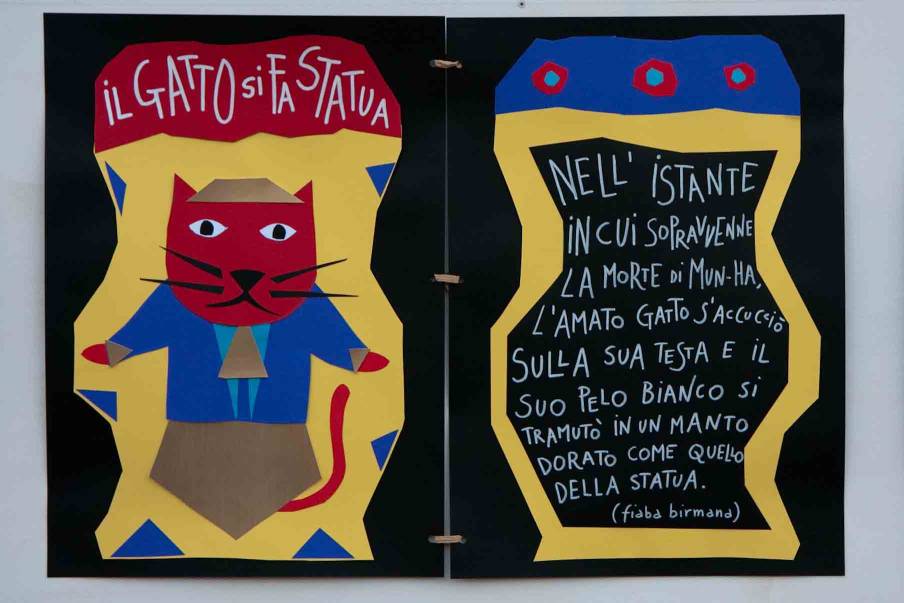 iL GATTO Si FA STATUA
NELL' iSTANTE
iN CUi SOPRAVVENNE
LA MORTE di MUN-HA,
L'AMATO GATTO S'ACCUCCiÒ
SULLA SUA TESTA E iL
SUO PELO BiANCO Si
TRAMUTÒ iN UN MANTO
DORATO COME QUELLO
DELLA STATUA.
(fiaba birmana)